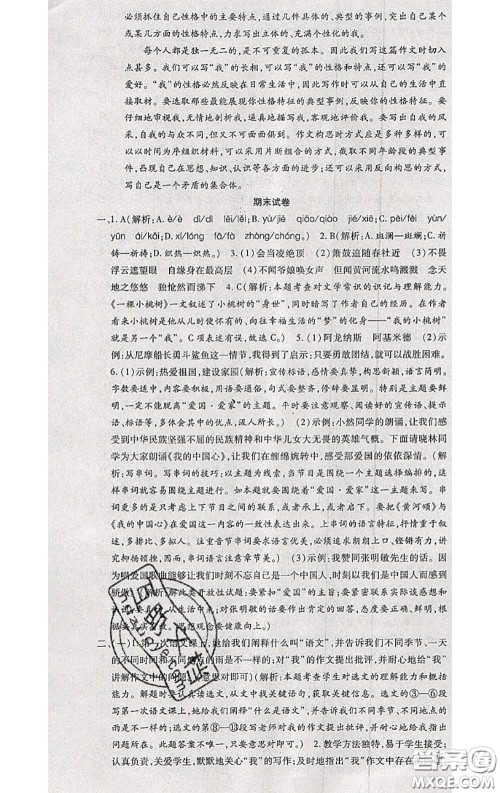 必须抓住自己性格中的主要特点,通过几件具体的、典型的事例,突出自己某个
或某几方面的性格特点,力求写出立体的、充满个性化的我。
每个人都是独一无二的,是不可重复的孤本。因此我们写这篇作文时切入
点甚多。我们可以写“我”的长相,可以写“我”的性格和特点,还可以写“我”的
爱好。“我”的性格必然反映在日常生活中,因此写作时可以从自己的生活中直
接取材。要选取那些最能展现自我性格特征的典型事例,反映你的性格特征。要
仔细地审视我,无情地剖析我,逼真地描写我,客观地评价我。要突出自我的风
采,自我的与众不同,但又不可面面俱到。作文构思时方式应是多种多样的,可
以以时间为序组织材料,可以采用片断组合的方式,截取不同年龄段的典型事
件,凸现自己在思想、知识、认识等各方面的进步;还可以采用反向构思的方式,
写自己是一个矛盾的集合体。
期末试卷
一、1.A(解析:A. è/è dī/dì lěi/lěi;B. yù/jiè qiāo/qiào jié/xié;C. pèi/fèi yùn/
yūn āi/kǎi;D. xǐ/lóng fā/fà zhòng/chóng。) 2.B(解析:A. 斑澜—斑斓;C. 祈
铸—祈祷;D. 织热—炽热。) 3.(1)会当凌绝顶 (2)箫鼓追随春社近 (3)不畏
浮云遮望眼 自缘身在最高层 (4)不闻爷娘唤女声 但闻黄河流水鸣溅溅 念天
地之悠悠 独怆然而涕下 4.C(解析:本题考查对文学常识的识记与理解能力。
《一棵小桃树》一文叙述了小桃树的“身世”,同时暗写了作者自己的经历。在作者
看来小桃树是他从儿时便怀有的、向往幸福生活的“梦”的化身——“我的小桃树”
就是另一个“我”。C项表述不正确。) 5.(1)阿龙纳斯 阿基米德 (2)示
例:从尼摩船长勇斗鲨鱼这一情节,我得到了启示:只要勇敢,就可以战胜困难。
6.(1)示例:热爱祖国,建设家园(解析:宣传标语,感情要真挚,构思新颖,语言简明。
字数要适中,内容要积极、健康,用语要通俗,句式要整齐,修辞要显明。特别是主题要鲜
明,一定不能脱离“爱国·爱家”的主题。平时要注意观察、阅读,向广告语、提示
语、标语等,多体会其中的优点,汲人所长。) (2)示例:小然同学的朗诵,让我们感
受到中华民族坚强不屈的民族精神和中华儿女大无畏的英雄气概。下面请晓林同
学为大家朗诵《我的中国心》,让我们在缠绵婉转中,感受那爱国的依依深情。(解
析:写串词。写串词的技巧:以主题为灵魂,围绕一个主题选择编排的,这
样串词就容易围绕主题开展。本题要求串词应该围绕“爱国·爱家”这一主题。串
词更多的是只考虑上下节目之间的联系,或者承上,或者启下。要根据《黄河颂》与
《我的中国心》在爱国这一内容的一致性展开。上串词的语言特征,抒情重于叙
述,多排比、多拟人。注意音节串词要求语言优美、必须考虑朗朗上口、铿锵有力,讲
究抑扬顿挫,串词语言注意章节美。) (3)示例:我赞同张明敏先生的话。因
为唱爱国歌曲能够让我们时刻不忘自己是一个中国人,时刻以我们是中国人而感到
二、(一)1.第一次语文课上,她给我们阐释什么叫“语文”,并告诉我们不同季节、一天
的不同时间和不同地域的雨是不一样的;对“我”的作文提出批评,并耐心地给“我”
讲解作文中的问题。(意思对即可)(解析:本题考查学生对选文的理解能力与概括
能力。解题时要从速读选文,从文中找关键语句,依据找到的信息概括。选文的③—⑥段
写第一次语文课上,她给我们阐释“什么是语文”,并讲述不同季节、不同时间、不同地点的
雨是不一样的。选文的⑧—⑬段写老师对我的作文提出批评,并耐心地给我指出
问题所在。此题答案不唯一,只要意思对即可。) 2.教学方法独特,易于学生接受;
认真负责,关爱学生,默默地关心“我”的写作;及时地指出“我”作文中存在
答案圈
MXQE.COM